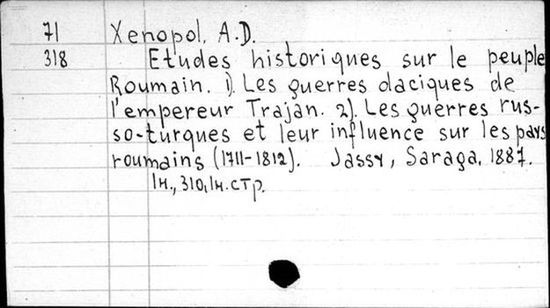 71 Xenopol, A.D.
318 Etudes historiques sur le peuple
Roumain. 1). Les guerres daciques de
l'empereur Trajan. 2). Les guerres rus-
so-turques et leur influence sur les pays
roumains (1711-1812). Jassy, Saraga, 1887.
1н., 310, 1н. стр.